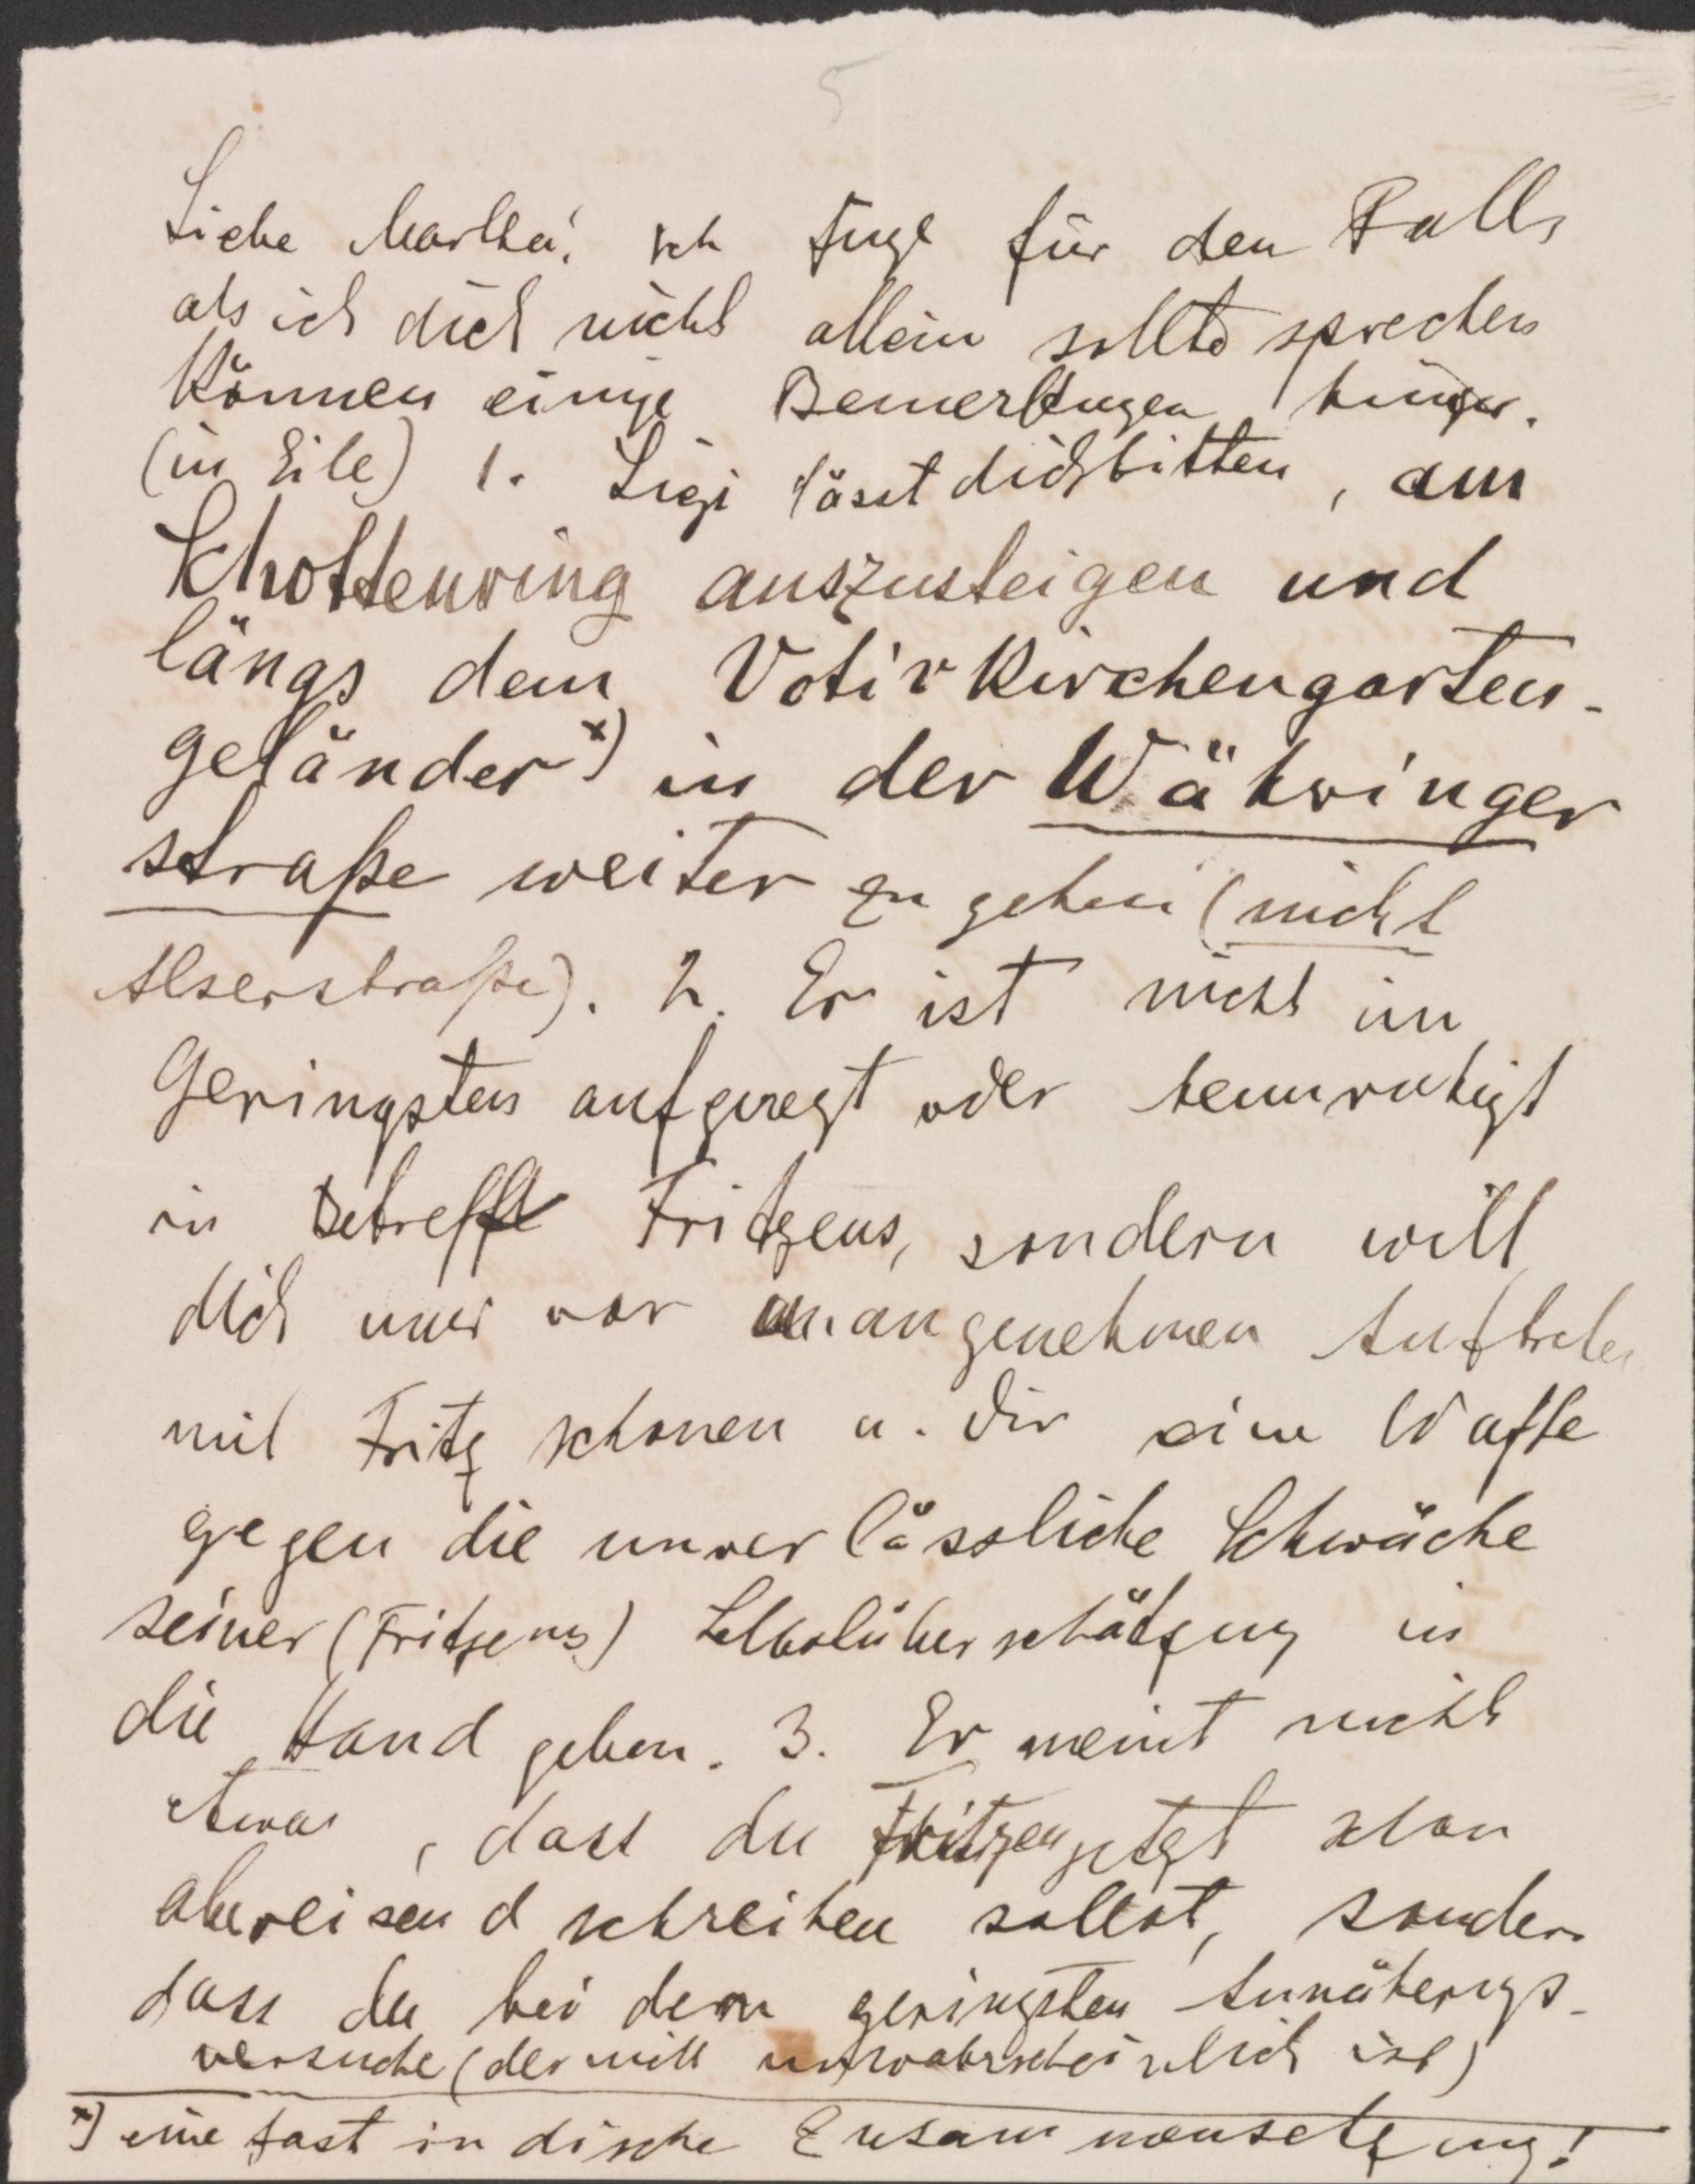 5
Liebe Martha! Ich füge für den Fall,
als ich dich nicht allein sollte sprechen
können einige Bemerkungen hinzu.
(in Eile) 1. Sigi lässt dich bitten, am
Schottenring auszusteigen und
längs dem Votivkirchengarten-
geländer x) in der Währinger
straße weiter zu gehen (nicht
Alserstraße). 2. Er ist nicht im
Geringsten aufgeregt oder beunruhigt
in Betreff Fritzens, sondern will
dich nur vor unangenehmen Auftreten
mit Fritz schonen u. dir eine Waffe
gegen die unverlässliche Schwäche
seiner (Fritzens) Selbstüberschätzung in
die Hand geben. 3. Er meint nicht
etwa, dass du Fritzen jetzt schon
abweisend schreiben sollst, sondern
dass du bei dem geringsten Annäherungs-
versuche (der nicht unwahrscheinlich ist)
x) eine fast indische Zusammensetzung!